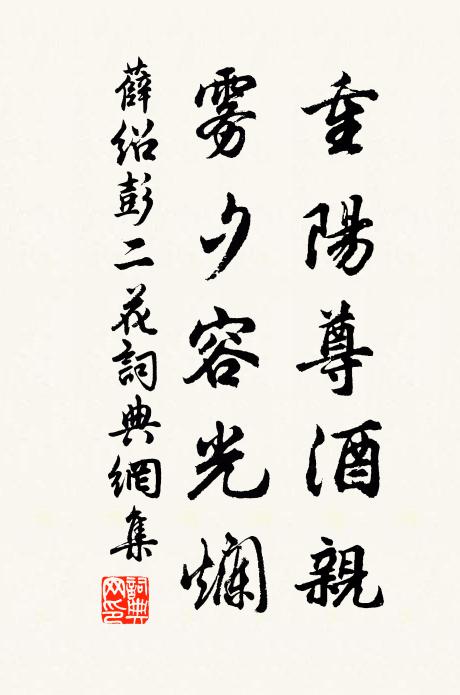 重陽尊酒親
雾夕容光爛
薛紹彭二花詞典網集
詞典網印